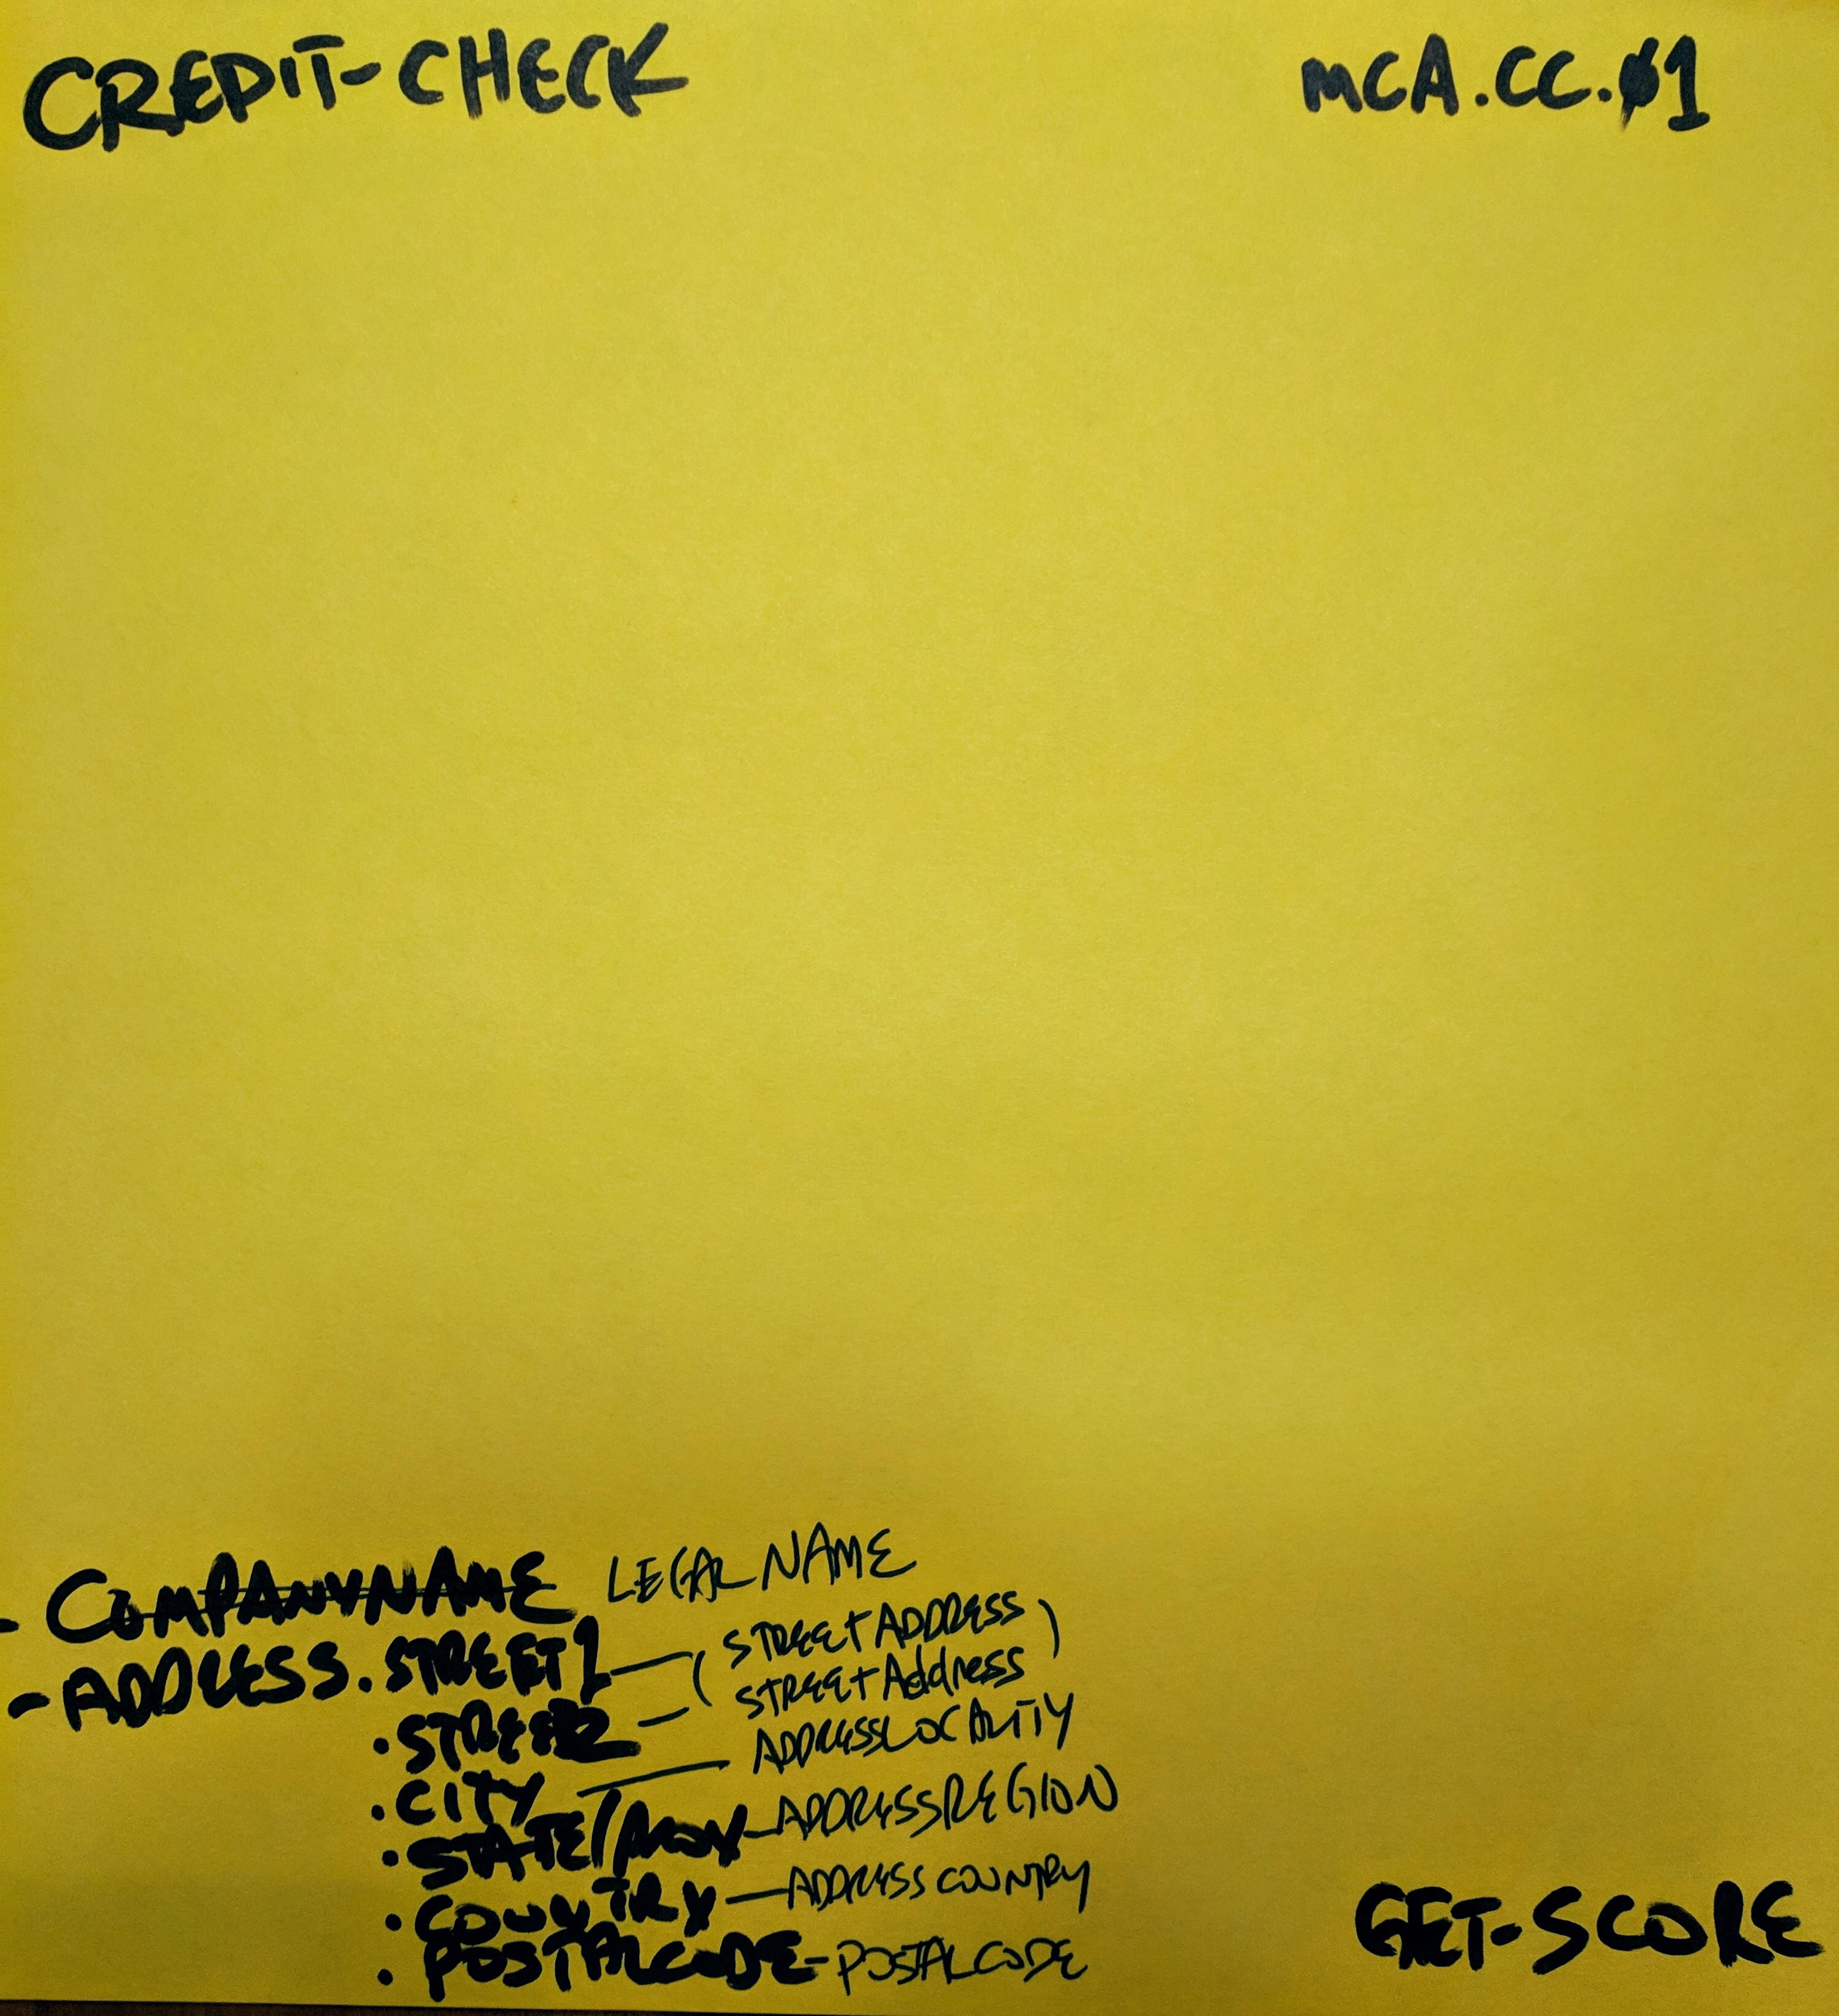 CREDIT-CHECK
MCA.CC.01
- COMPANYNAME LEGALNAME
- ADDRESS.STREET1 — (STREETADDRESS)
.STREET2 — STREETAddress
.CITY — ADDRESSLOCALITY
.STATE/PROV — ADDRESSREGION
.COUNTRY — ADDRESSCOUNTRY
.POSTALCODE - POSTALCODE
GET-SCORE